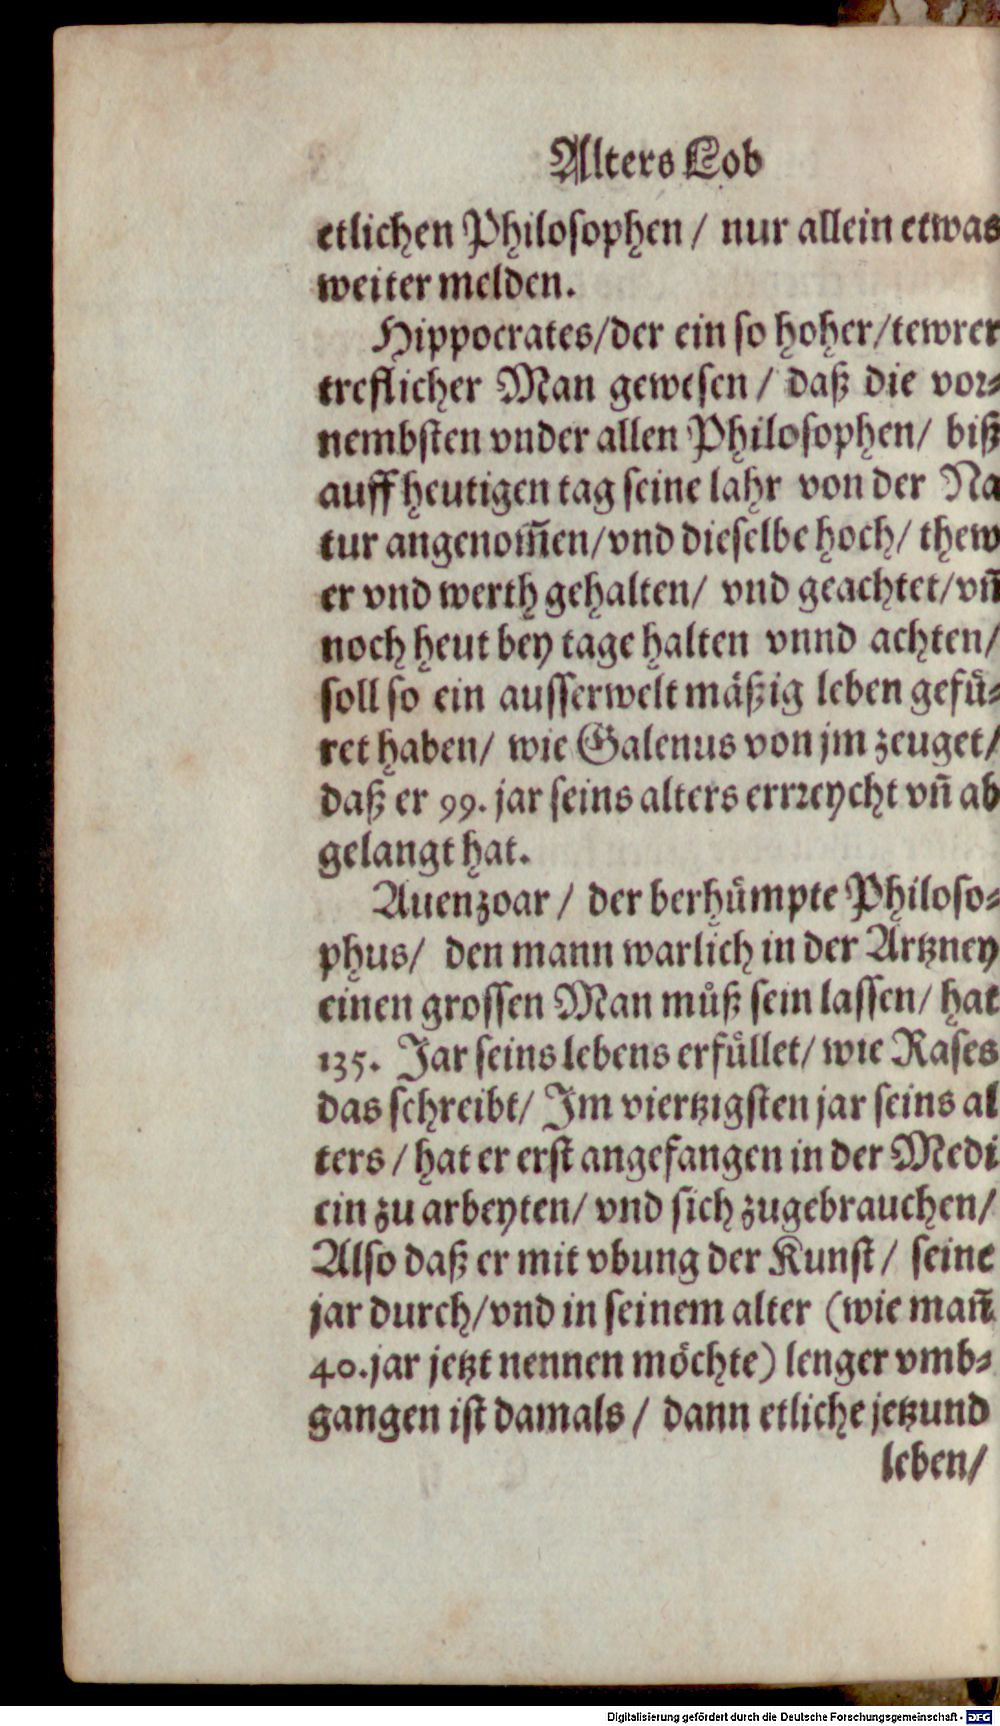 Alters Lob
etlichen Philosophen / nur allein etwas
weiter melden.
Hippocrates/der ein so hoher/tewrer
treflicher Man gewesen / daß die vor⸗
nembsten vnder allen Philosophen/ biß
auff heutigen tag seine lahr von der Na
tur angenom̃en/vnd dieselbe hoch/ thew
er vnd werth gehalten/ vnd geachtet/vñ
noch heut bey tage halten vnnd achten/
soll so ein ausserwelt mäßig leben gefü⸗
ret haben/ wie Galenus von jm zeuget/
daß er 99. jar seins alters erꝛreycht vñ ab
gelangt hat.
Auenzoar / der berhümpte Philoso⸗
phus/ den mann warlich in der Artzney
einen grossen Man můß sein lassen/ hat
135. Jar seins lebens erfüllet/ wie Rases
das schreibt/ Im viertzigsten jar seins al
ters / hat er erst angefangen in der Medi
cin zu arbeyten/ vnd sich zugebrauchen/
Also daß er mit vbung der Kunst/ seine
jar durch/vnd in seinem alter (wie mañ
40.jar jetzt nennen möchte) lenger vmb⸗
gangen ist damals / dann etliche jetzund
leben/
Digitalisierung gefördert durch die Deutsche Forschungsgemeinschaft - DFG